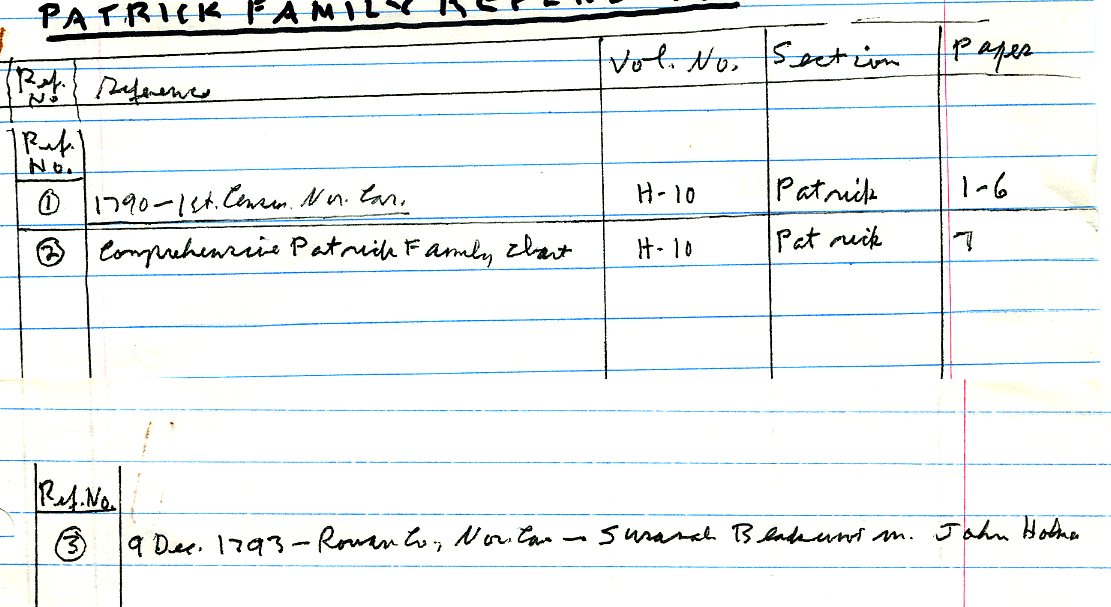 PATRICK FAMILY
Ref. No. Reference Vol. No. Section Pages
Ref.
No.
① 1790-1st. Census. Nor. Car. H-10 Patrick 1-6
② Comprehensive Patrick Family Chart H-10 Patrick 7
Ref. No.
③ 9 Dec. 1793 - Rowan Co., Nor. Car - m. John